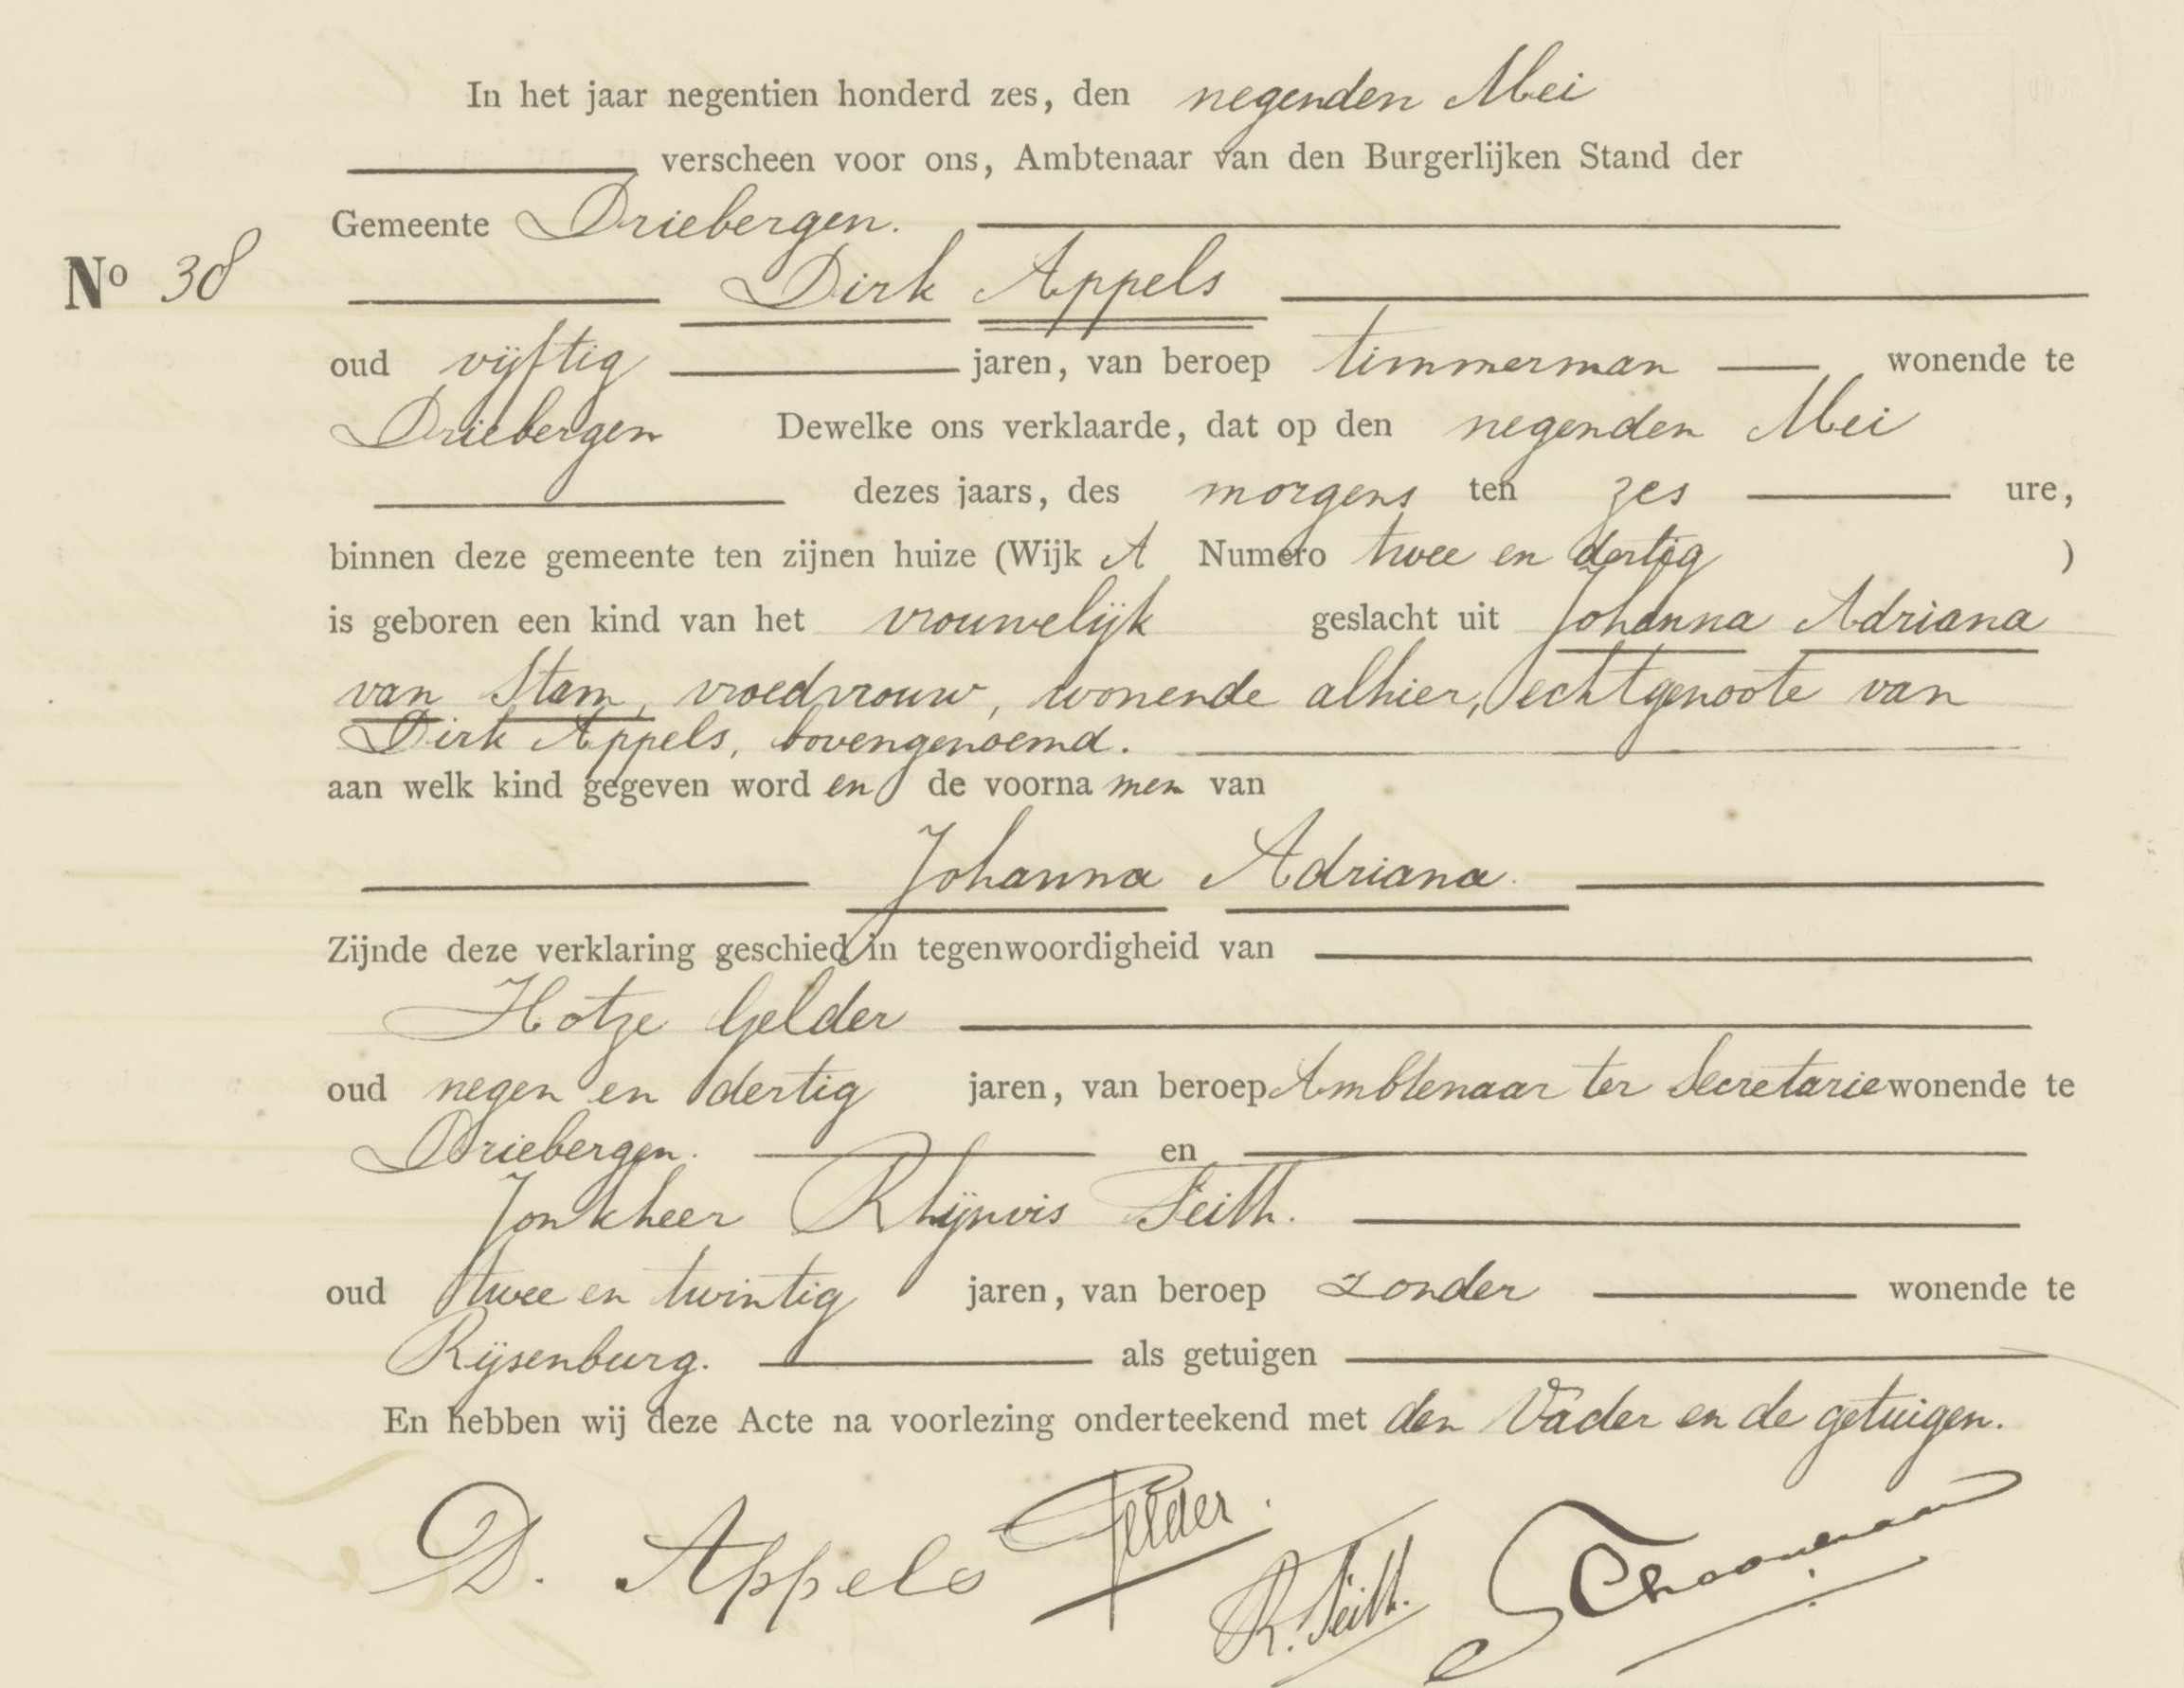 In het jaar negentien honderd zes, den negenden Mei
verscheen voor ons, Ambtenaar van den Burgerlijken Stand der
Gemeente Driebergen.
No 38 Dirk Appels
oud vijftig jaren, van beroep timmerman wonende te
Driebergen Dewelke ons verklaarde, dat op den negenden Mei
dezes jaars, des morgens ten zes ure,
binnen deze gemeente ten zijnen huize (Wijk A Numero twee en dertig )
is geboren een kind van het vrouwelijk geslacht uit Johanna Adriana
van Stam, vroedvrouw, wonende alhier, echtgenoote van
Dirk Appels, bovengenoemd.
aan welk kind gegeven worden de voornamen van
Johanna Adriana.
Zijnde deze verklaring geschied in tegenwoordigheid van
Hotze Gelder
oud negen en dertig jaren, van beroep Ambtenaar ter Secretarie wonende te
Driebergen. en
Jonkheer Rhijnvis Feith.
oud twee en twintig jaren, van beroep zonder wonende te
Rijsenburg. als getuigen
En hebben wij deze Acte na voorlezing onderteekend met den Vader en de getuigen.
D. Appels Gelder.
R. Feith.